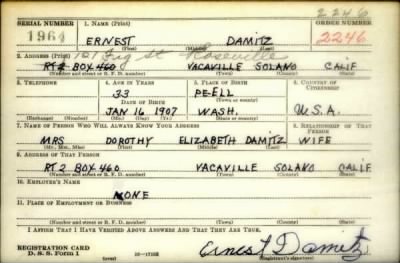 2246
SERIAL NUMBER 1. NAME (Print) ORDER NUMBER
1964 ERNEST DAMITZ 2246
(First) (Middle) (Last)
2. ADDRESS (Print) 101 Fig St Roseville
RT 2 BOX 460 VACAVILLE SOLANO CALIF
(Number and street or R. F. D. number) (Town) (County) (State)
3. TELEPHONE 4. AGE IN YEARS 5. PLACE OF BIRTH 6. COUNTRY OF CITIZENSHIP
33 PE-ELL
DATE OF BIRTH (Town or county)
JAN 16 1907 WASH. U.S.A.
(Exchange) (Number) (Mo.) (Day) (Yr.) (State or country)
7. NAME OF PERSON WHO WILL ALWAYS KNOW YOUR ADDRESS 8. RELATIONSHIP OF THAT PERSON
MRS DOROTHY ELIZABETH DAMITZ WIFE
(Mr., Mrs., Miss) (First) (Middle) (Last)
9. ADDRESS OF THAT PERSON
RT 2 BOX 460 VACAVILLE SOLANO CALIF
(Number and street or R. F. D. number) (Town) (County) (State)
10. EMPLOYER'S NAME
NONE
11. PLACE OF EMPLOYMENT OR BUSINESS
(Number and street or R. F. D. number) (Town) (County) (State)
I AFFIRM THAT I HAVE VERIFIED ABOVE ANSWERS AND THAT THEY ARE TRUE.
REGISTRATION CARD
D. S. S. Form 1 Ernest Damitz
(Registrant's signature)